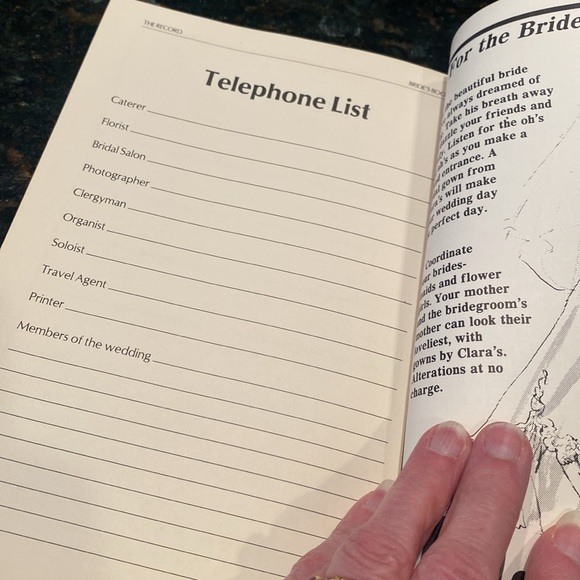 THE RECORD
BRIDE'S BOO
Telephone List
Caterer
Florist
Bridal Salon
Photographer
Clergyman
Organist
Soloist
Travel Agent
Printer
Members of the wedding
For the Bride
beautiful bride
always dreamed of
Take his breath away
your friends and
Listen for the oh's
as you make a
entrance. A
gown from
will make
wedding day
perfect day.
Coordinate
brides-
and flower
Your mother
and the bridegroom's
mother can look their
loveliest, with
gowns by Clara's.
Alterations at no
charge.